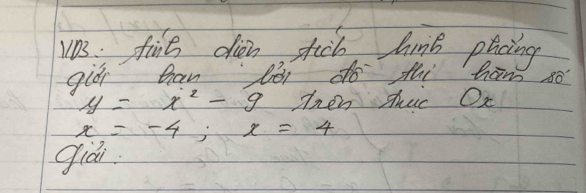 VD3: tính diện tích hình phẳng
giới hạn bởi đồ thị hàm số
y = x² - 9 trên trục Ox
x = -4; x = 4
Giải: